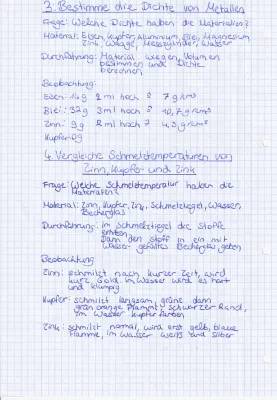 3. Bestimme die Dichte von Metallen
Frage: Welche Dichte haben die Materialien?
Material: Eisen, Kupfer, Aluminium, Blei, Magnesium
Zink, Waage, Messzylinder, Wasser
Durchführung: Material wiegen, Volumen
bestimmen und Dichte
berechnen
Beobachtung:
Eisen: 14g 2 ml hoch 7 g/cm³
Blei: 32g 3 ml hoch 10,7 g/cm³
Zinn: 9g 2 ml hoch 4,5 g/cm³
Kupfer:
4. Vergleiche Schmelztemperaturen von
Zinn, Kupfer und Zink
Frage: Welche Schmelztemperatur haben die
Materialien?
Material: Zinn, Kupfer, Zink, Schmelztiegel, Wasser,
Becherglas
Durchführung: im Schmelztiegel die Stoffe
Dann den Stoff in ein mit
Wasser gefülltes Becherglas geben
Beobachtung
Zinn: schmilzt nach kurzer Zeit, wird
kurz Gold. im Wasser wird es hart
und klumpig
Kupfer: schmilzt langsam, grüne dann
grün orange Flamme, schwarzer Rand,
im Wasser kupferfarben
Zink: schmilzt normal, wird erst gelb, blaue
Flamme, im Wasser weiß und silber